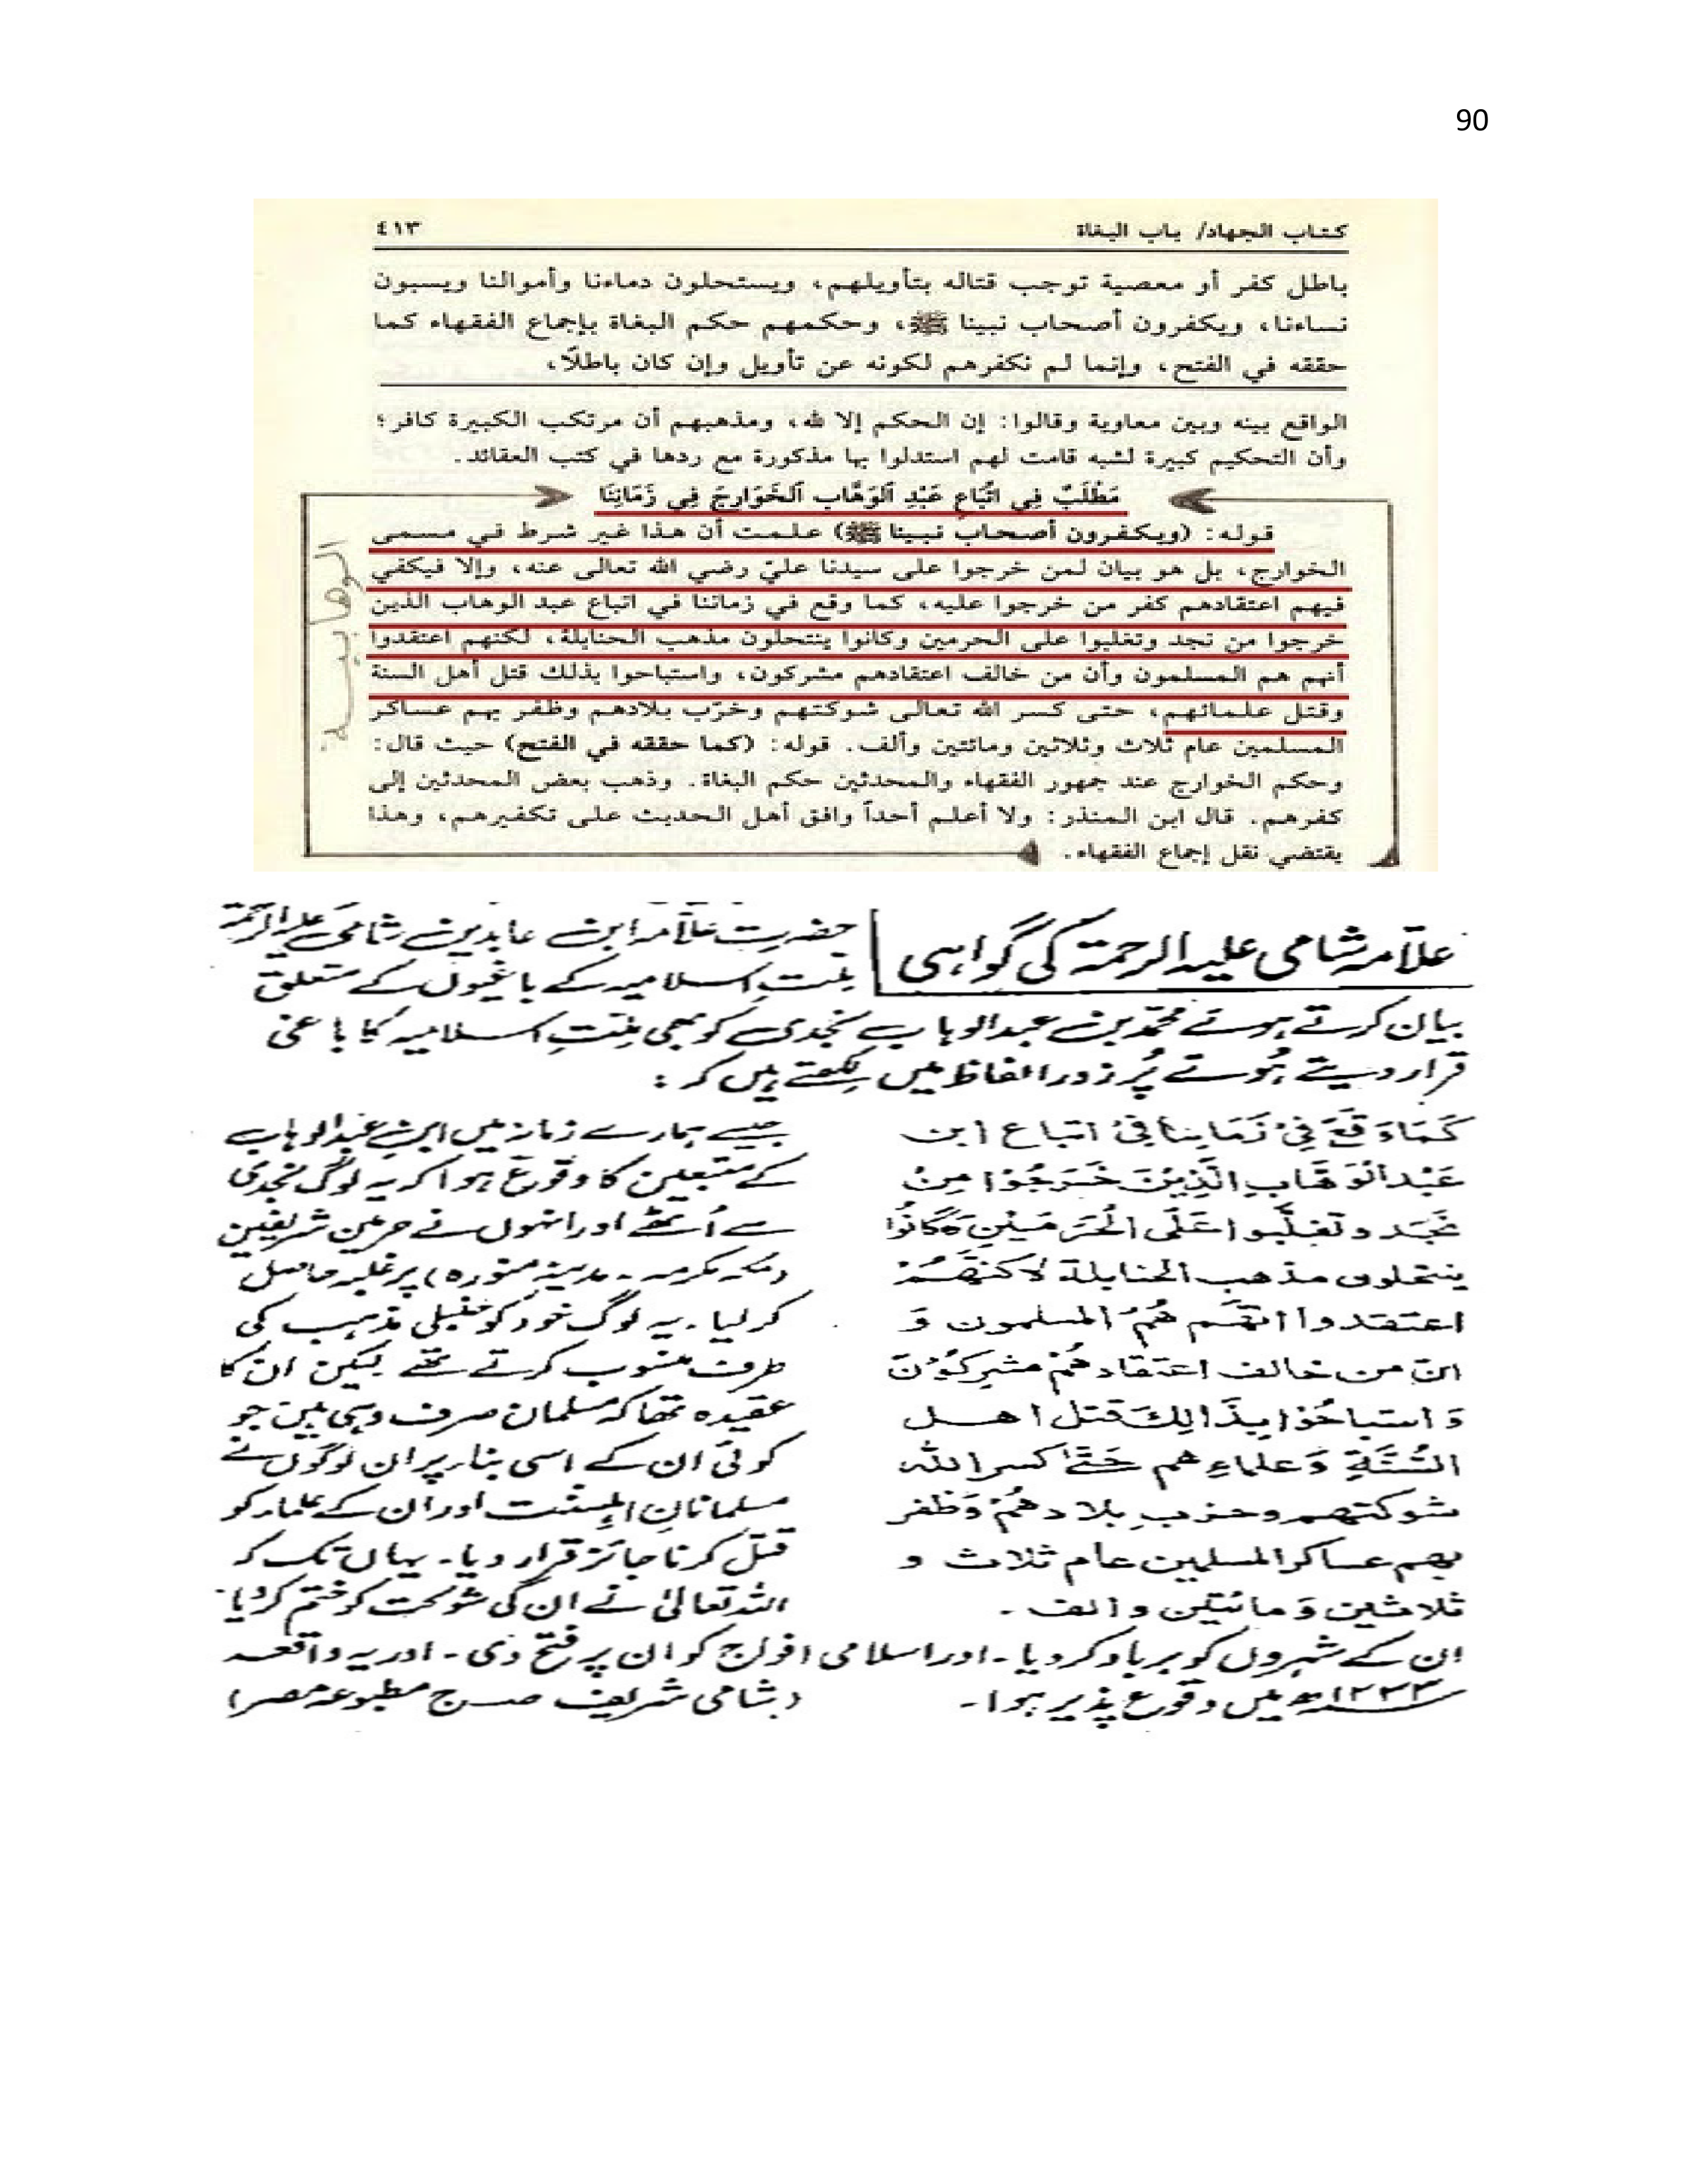 90
كتاب الجهاد/ باب البغاة
٤١٣
باطل كفر أو معصية توجب قتاله بتأويلهم، ويستحلون دماءنا وأموالنا ويسبون
نساءنا، ويكفرون أصحاب نبينا ﷺ، وحكمهم حكم البغاة بإجماع الفقهاء كما
حققه في الفتح، وإنما لم نكفرهم لكونه عن تأويل وإن كان باطلاً،
الواقع بينه وبين معاوية وقالوا: إن الحكم إلا لله، ومذهبهم أن مرتكب الكبيرة كافر؛
وأن التحكيم كبيرة لشبه قامت لهم استدلوا بها مذكورة مع ردها في كتب العقائد.
مَطْلَبٌ فِي اتْبَاعِ عَبْدِ ٱلوَهَّابِ ٱلخَوَارِجَ فِي زَمَانِنَا
قوله: (ويكفرون أصحاب نبينا ﷺ) علمت أن هذا غير شرط في مسمى
الخوارج، بل هو بيان لمن خرجوا على سيدنا عليّ رضي الله تعالى عنه، وإلا فيكفي
فيهم اعتقادهم كفر من خرجوا عليه، كما وقع في زماننا في اتباع عبد الوهاب الذين
خرجوا من نجد وتغلبوا على الحرمين وكانوا ينتحلون مذهب الحنابلة، لكنهم اعتقدوا
أنهم هم المسلمون وأن من خالف اعتقادهم مشركون، واستباحوا بذلك قتل أهل السنة
وقتل علمائهم، حتى كسر الله تعالى شوكتهم وخرّب بلادهم وظفر بهم عساكر
المسلمين عام ثلاث وثلاثين ومائتين وألف. قوله: (كما حققه في الفتح) حيث قال:
وحكم الخوارج عند جمهور الفقهاء والمحدثين حكم البغاة. وذهب بعض المحدثين إلى
كفرهم. قال ابن المنذر: ولا أعلم أحداً وافق أهل الحديث على تكفيرهم، وهذا
يقتضي نقل إجماع الفقهاء.
الوهابيـــة
علّامہ شامی علیہ الرحمۃ کی گواہی
حضرت علّامہ ابن عابدین شامی علیہ الرحمۃ
ملتِ اسلامیہ کے باغیوں کے متعلق
بیان کرتے ہوئے محمد بن عبدالوہاب نجدی کو بھی ملتِ اسلامیہ کا باغی
قرار دیتے ہُوئے پُر زور الفاظ میں لکھتے ہیں کہ :
كَمَا وَقَعَ فِيْ زَمَانِنَا فِيْ اتباع ابن
عَبْدِ الْوَهَّابِ الَّذِيْنَ خَرَجُوْا مِنْ
نَجَد وتَغلَّبوا عَلَى الْحَرَمَيْنِ وَكَانُوا
ينتحلون مذهب الحنابلة لاكنهُمْ
اعتقدوا انّهم هُمُ المسلمون وَ
انّ من خالف اعتقادهُمْ مشرِكُوْنَ
وَ استباحُوْا بِذَالِكَ قتل اهل
السُّنَّةِ وَ علماءِهم حَتّٰى كسر الله
شوكتهم وخرب بلادهُمْ وَظفر
بهم عساكر المسلمين عام ثلاث و
ثلاثين وَ مائتين والف ۔
جیسے ہمارے زمانہ میں ابن عبدالوہاب
کے متبعین کا وقوع ہوا کہ یہ لوگ نجدی
سے اُٹھے اور انہوں نے حرمین شریفین
(مکہ مکرمہ ۔ مدینہ منورہ) پر غلبہ حاصل
کر لیا ۔ یہ لوگ خود کو حنبلی مذہب کی
طرف منسوب کرتے تھے لیکن ان کا
عقیدہ تھا کہ مسلمان صرف وہی ہیں جو
کوئی ان کے اسی بناء پر ان لوگوں نے
مسلمانانِ اہلسنّت اور ان کے علماء کو
قتل کرنا جائز قرار دیا ۔ یہاں تک کہ
اللہ تعالیٰ نے ان کی شوکت کو ختم کر دیا
ان کے شہروں کو برباد کر دیا ۔ اور اسلامی افواج کو ان پر فتح دی ۔ اور یہ واقعہ
۱۲۳۳ھ میں وقوع پذیر ہوا ۔ (شامی شریف ج مطبوعہ مصر)